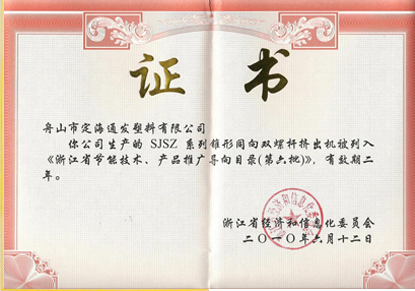 证书
舟山市定海通发塑料有限公司
你公司生产的 SJSZ 系列锥形同向双螺杆挤出机被列入
《浙江省节能技术、产品推广导向目录(第六批)》，有效期二
年。
浙江省经济和信息化委员会
二〇一〇年六月十二日